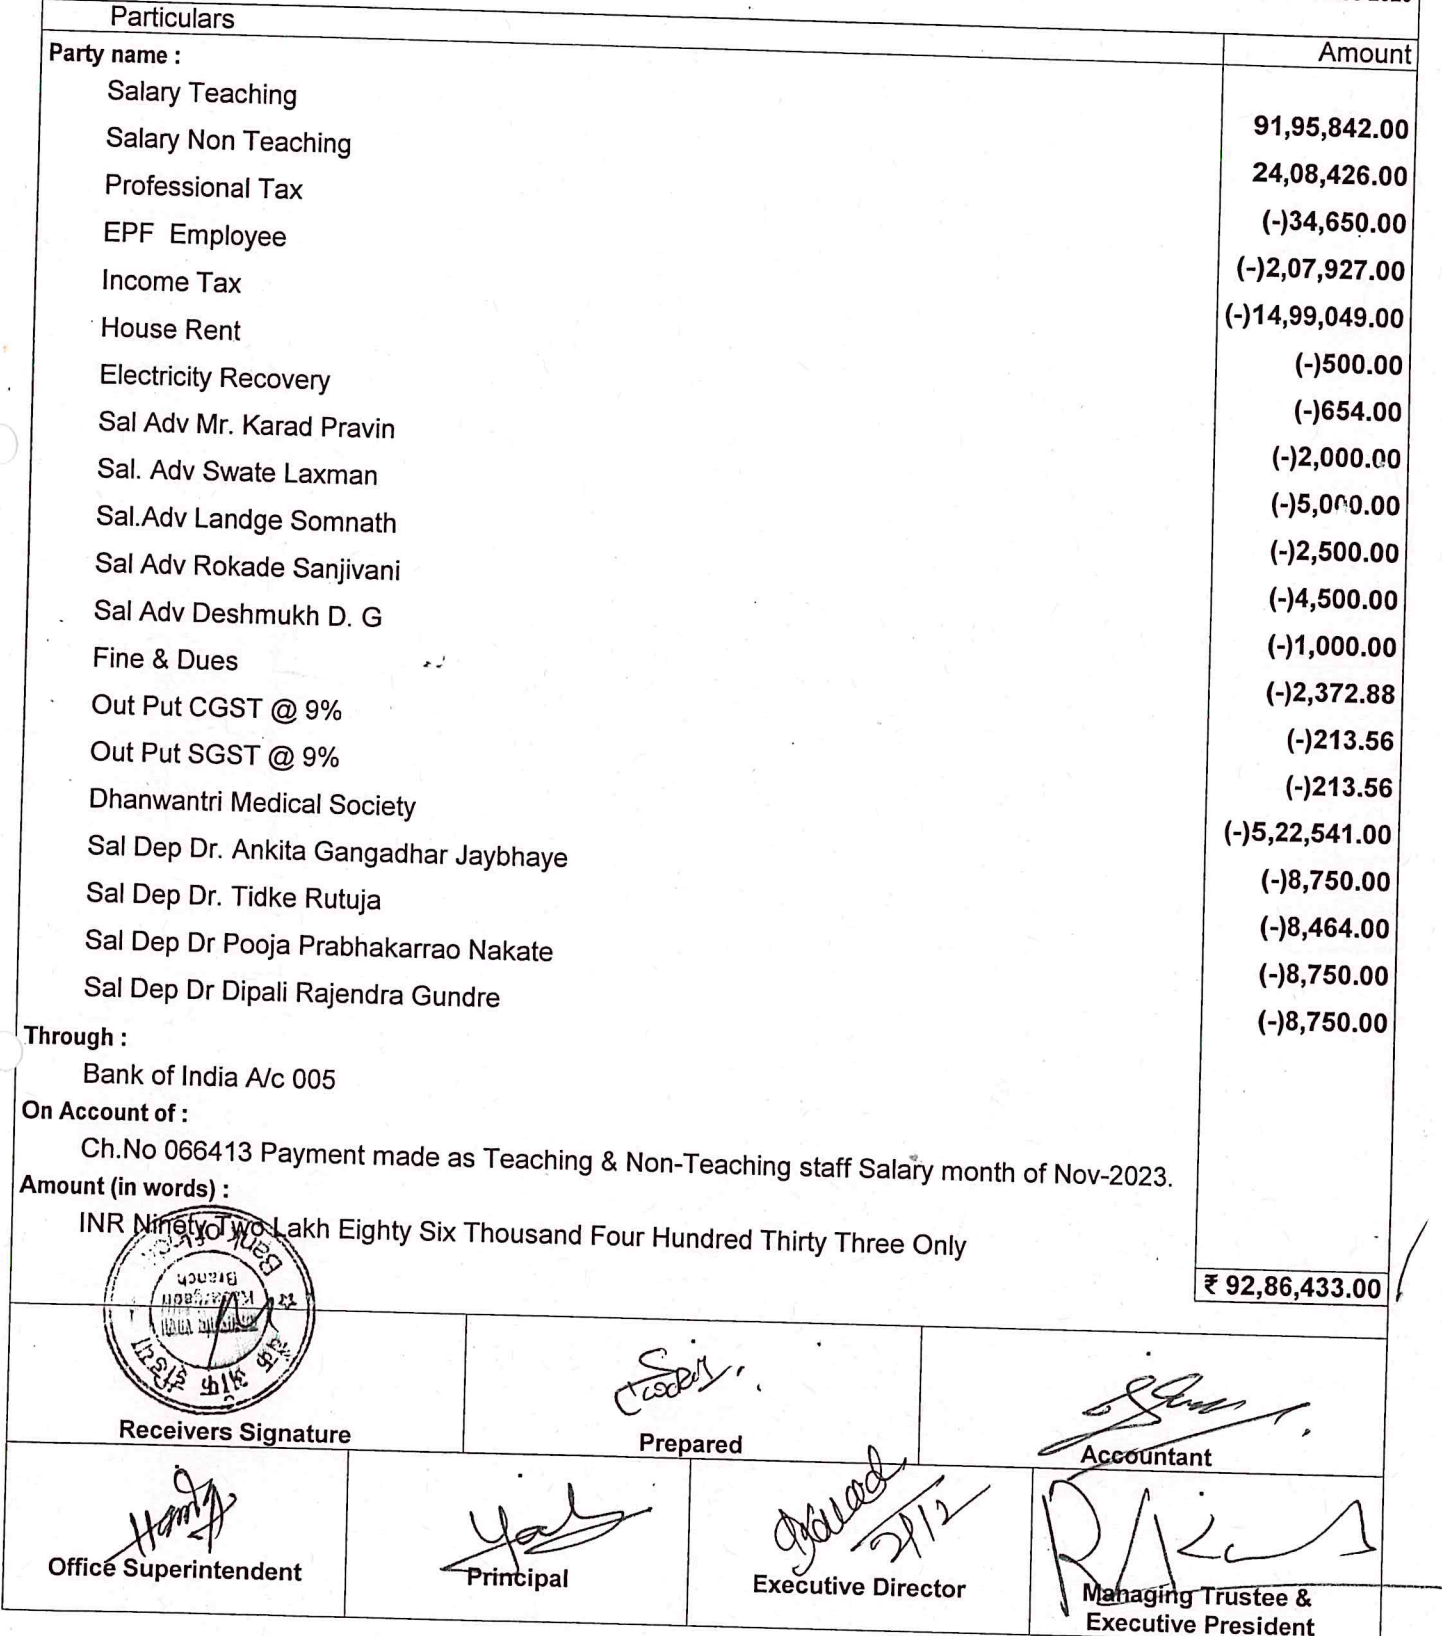 Particulars
Amount
Party name :
Salary Teaching 91,95,842.00
Salary Non Teaching 24,08,426.00
Professional Tax (-)34,650.00
EPF Employee (-)2,07,927.00
Income Tax (-)14,99,049.00
House Rent (-)500.00
Electricity Recovery (-)654.00
Sal Adv Mr. Karad Pravin (-)2,000.00
Sal. Adv Swate Laxman (-)5,000.00
Sal.Adv Landge Somnath (-)2,500.00
Sal Adv Rokade Sanjivani (-)4,500.00
Sal Adv Deshmukh D. G (-)1,000.00
Fine & Dues (-)2,372.88
Out Put CGST @ 9% (-)213.56
Out Put SGST @ 9% (-)213.56
Dhanwantri Medical Society (-)5,22,541.00
Sal Dep Dr. Ankita Gangadhar Jaybhaye (-)8,750.00
Sal Dep Dr. Tidke Rutuja (-)8,464.00
Sal Dep Dr Pooja Prabhakarrao Nakate (-)8,750.00
Sal Dep Dr Dipali Rajendra Gundre (-)8,750.00
Through :
Bank of India A/c 005
On Account of :
Ch.No 066413 Payment made as Teaching & Non-Teaching staff Salary month of Nov-2023.
Amount (in words) :
INR Ninety Two Lakh Eighty Six Thousand Four Hundred Thirty Three Only
₹ 92,86,433.00
Bank of
Branch
बँक ऑफ इंडिया
Receivers Signature
Prepared
Accountant
2/12
Office Superintendent
Principal
Executive Director
Managing Trustee &
Executive President